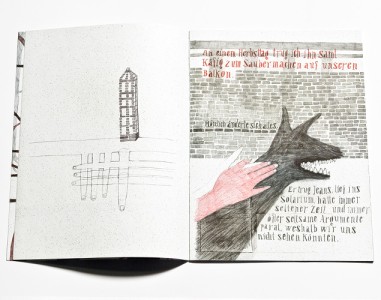 An einen Herbsttag trug ich ihn samt
Käfig zum Saubermachen auf unseren
Balkon.
Plötzlich änderte sich alles.
Er trug Jeans, lief ins
Solarium, hatte immer
seltener Zeit und immer
öfter seltsame Argumente
parat, weshalb wir uns
nicht sehen könnten.